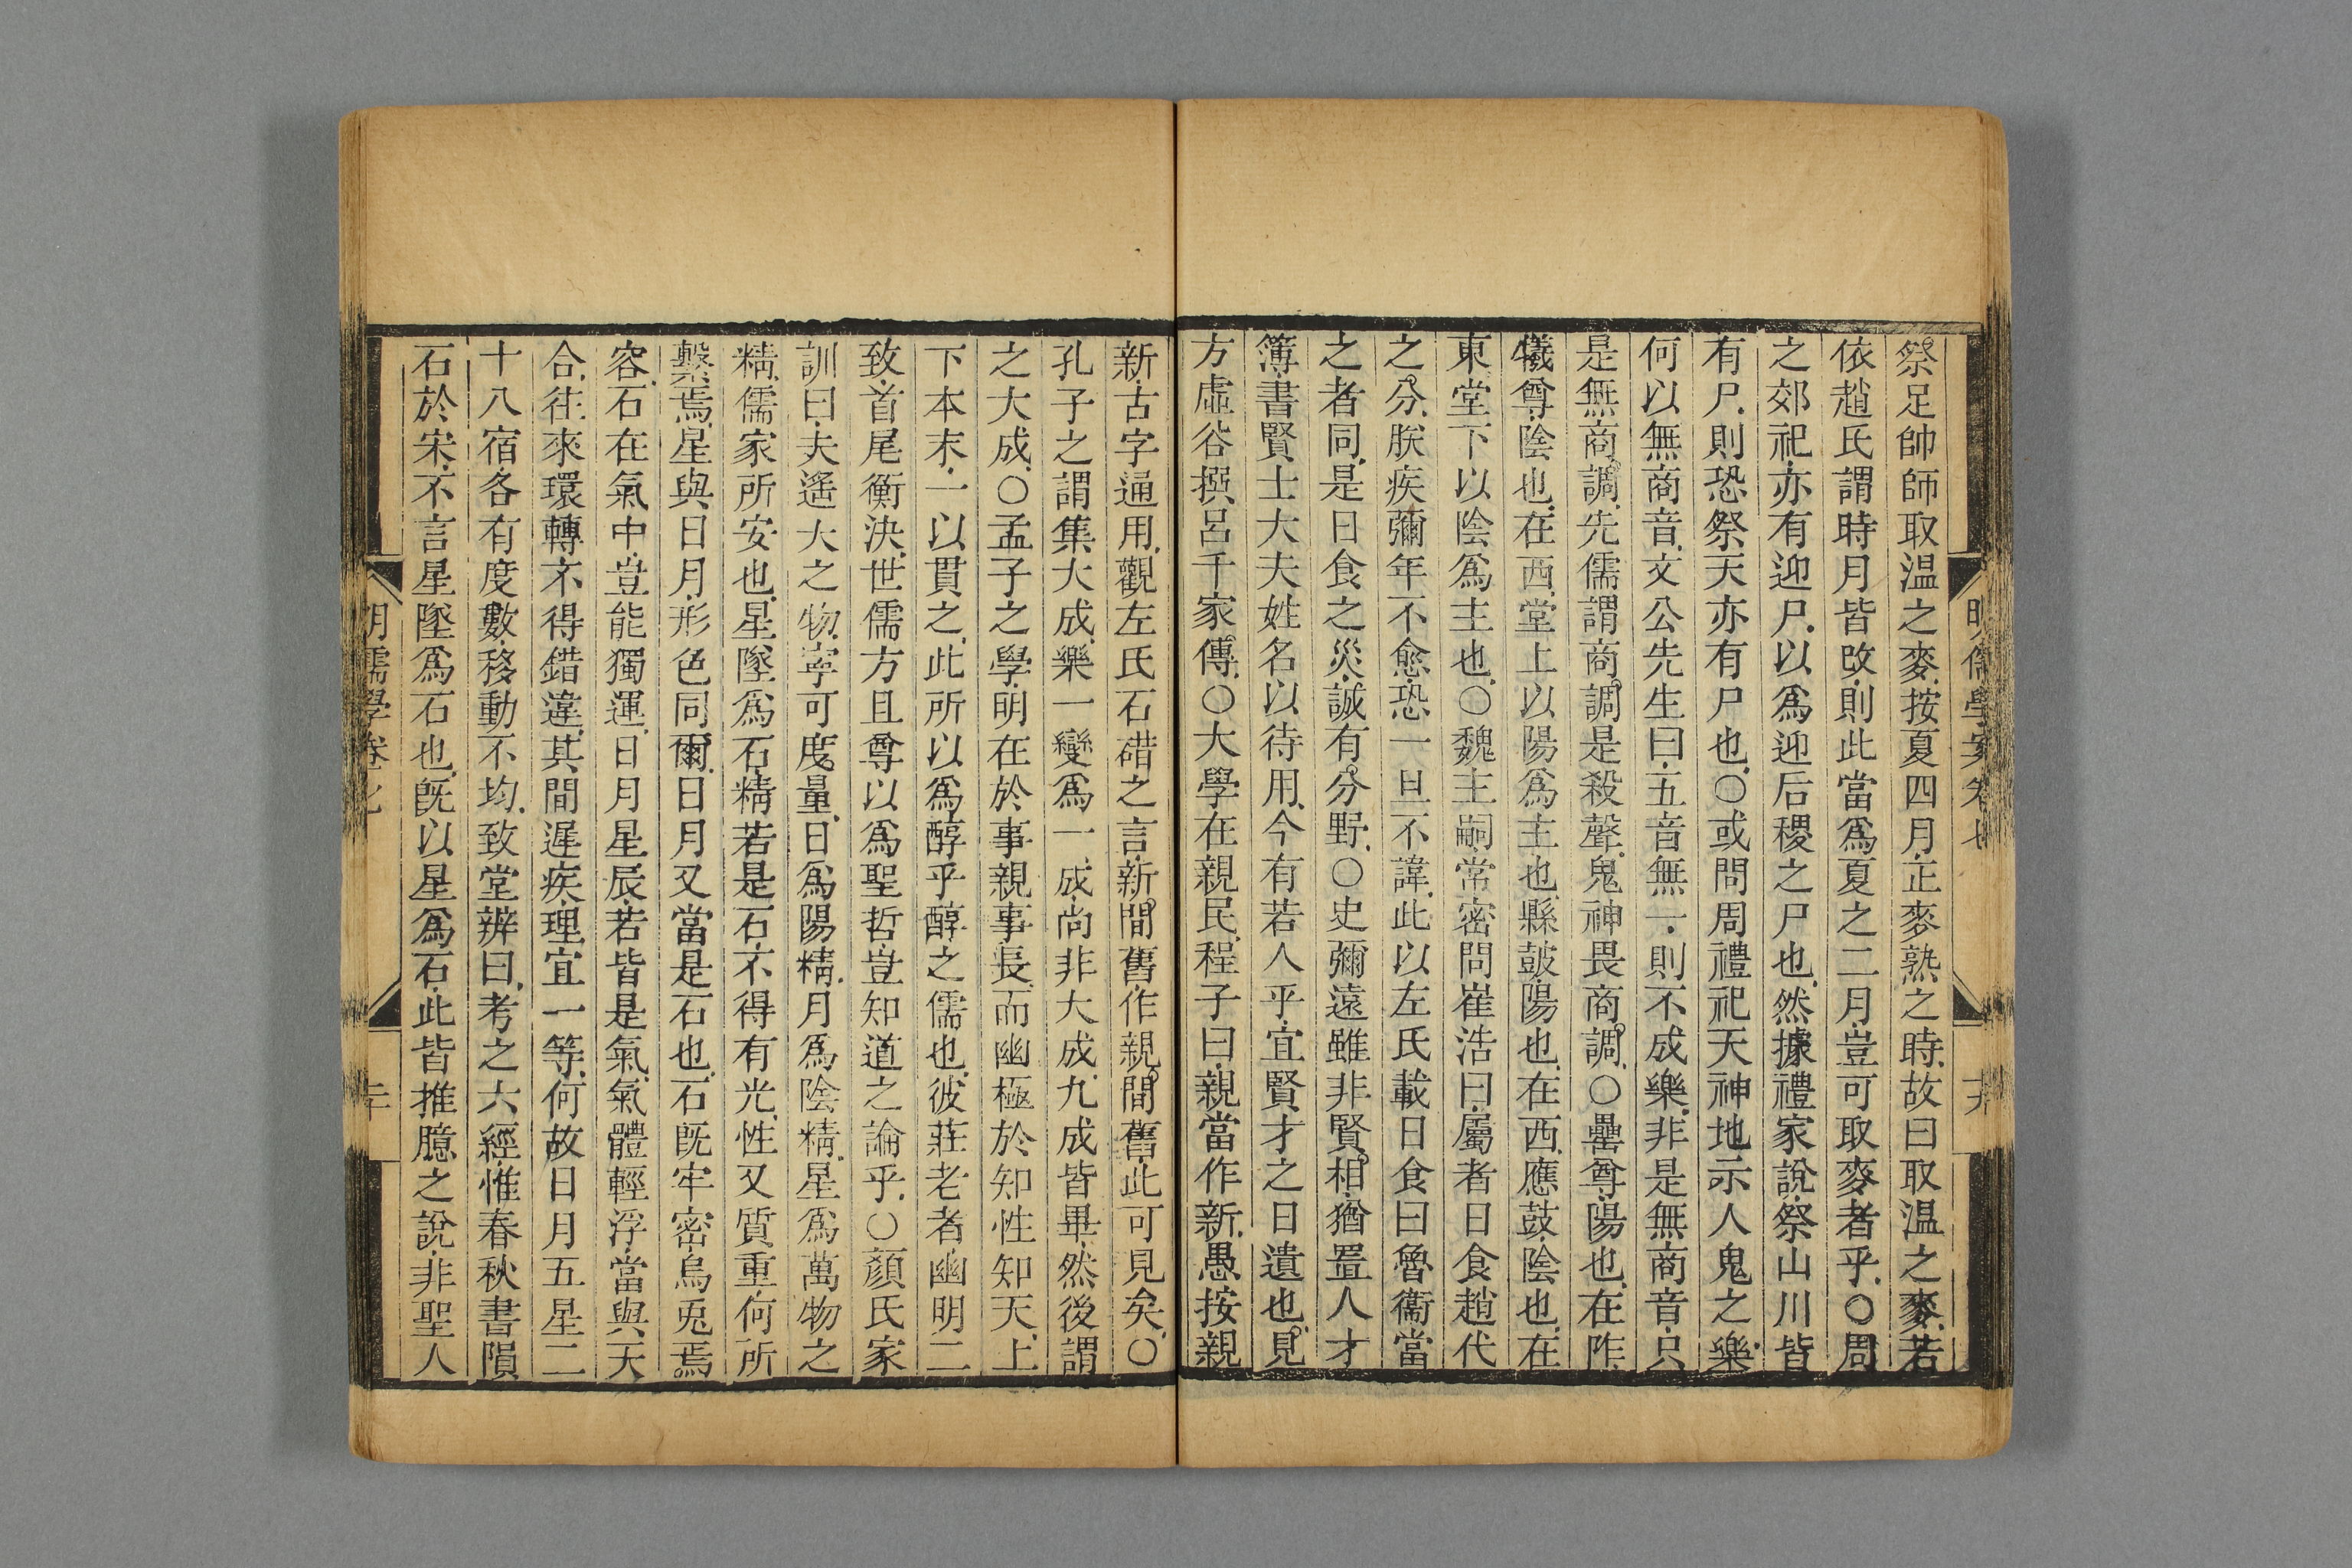 明儒學案卷七
十九
祭足帥師取温之麥按夏四月正麥熟之時故曰取温之麥若
依趙氏謂時月皆改則此當爲夏之二月豈可取麥者乎○周
之郊祀亦有迎尸以爲迎后稷之尸也然據禮家說祭山川皆
有尸則恐祭天亦有尸也○或問周禮祀天神地示人鬼之樂
何以無商音文公先生曰五音無一則不成樂非是無商音只
是無商調先儒謂商調是殺聲鬼神畏商調○罍尊陽也在阼
犧尊陰也在西堂上以陽爲主也縣鼓陽也在西應鼓陰也在
東堂下以陰爲主也○魏主嗣常密問崔浩曰屬者日食趙代
之分朕疾彌年不愈恐一旦不諱此以左氏載日食曰魯衞當
之者同是日食之災誠有分野○史彌遠雖非賢相猶置人才
簿書賢士大夫姓名以待用今有若人乎宜賢才之日遺也見
方虛谷撰呂千家傳○大學在親民程子曰親當作新愚按親
新古字通用觀左氏石碏之言新間舊作親間舊此可見矣○
孔子之謂集大成樂一變爲一成尚非大成九成皆畢然後謂
之大成○孟子之學明在於事親事長而幽極於知性知天上
下本末一以貫之此所以爲醇乎醇之儒也彼莊老者幽明二
致首尾衡決世儒方且尊以爲聖哲豈知道之論乎○顏氏家
訓曰夫遥大之物寧可度量日爲陽精月爲陰精星爲萬物之
精儒家所安也星墜爲石精若是石不得有光性又質重何所
繫焉星與日月形色同爾日月又當是石也石旣牢密烏兎焉
容石在氣中豈能獨運日月星辰若皆是氣氣體輕浮當與天
合往來環轉不得錯違其間遲疾理宜一等何故日月五星二
十八宿各有度數移動不均致堂辨曰考之六經惟春秋書隕
石於宋不言星墜爲石也旣以星爲石此皆推臆之說非聖人
明儒學卷七
二十